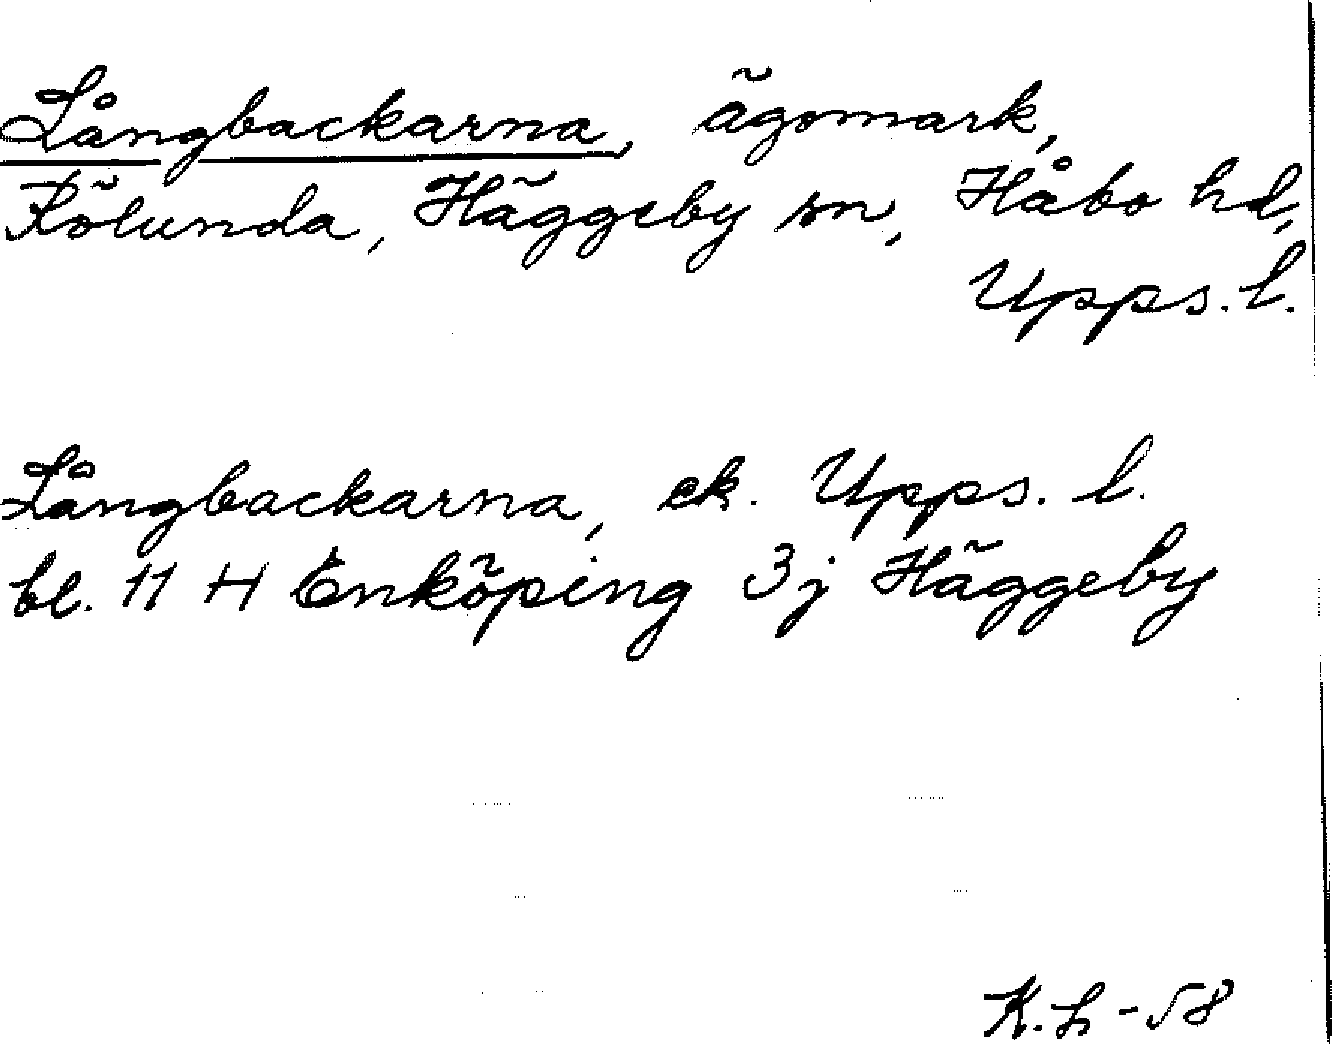 Långbackarna, ägomark,
Rölunda, Häggeby sn, Håbo hd,
Upps. l.
Långbackarna, ek. Upps. l.
bl. 11 H Enköping 3j Häggeby
K.L -58